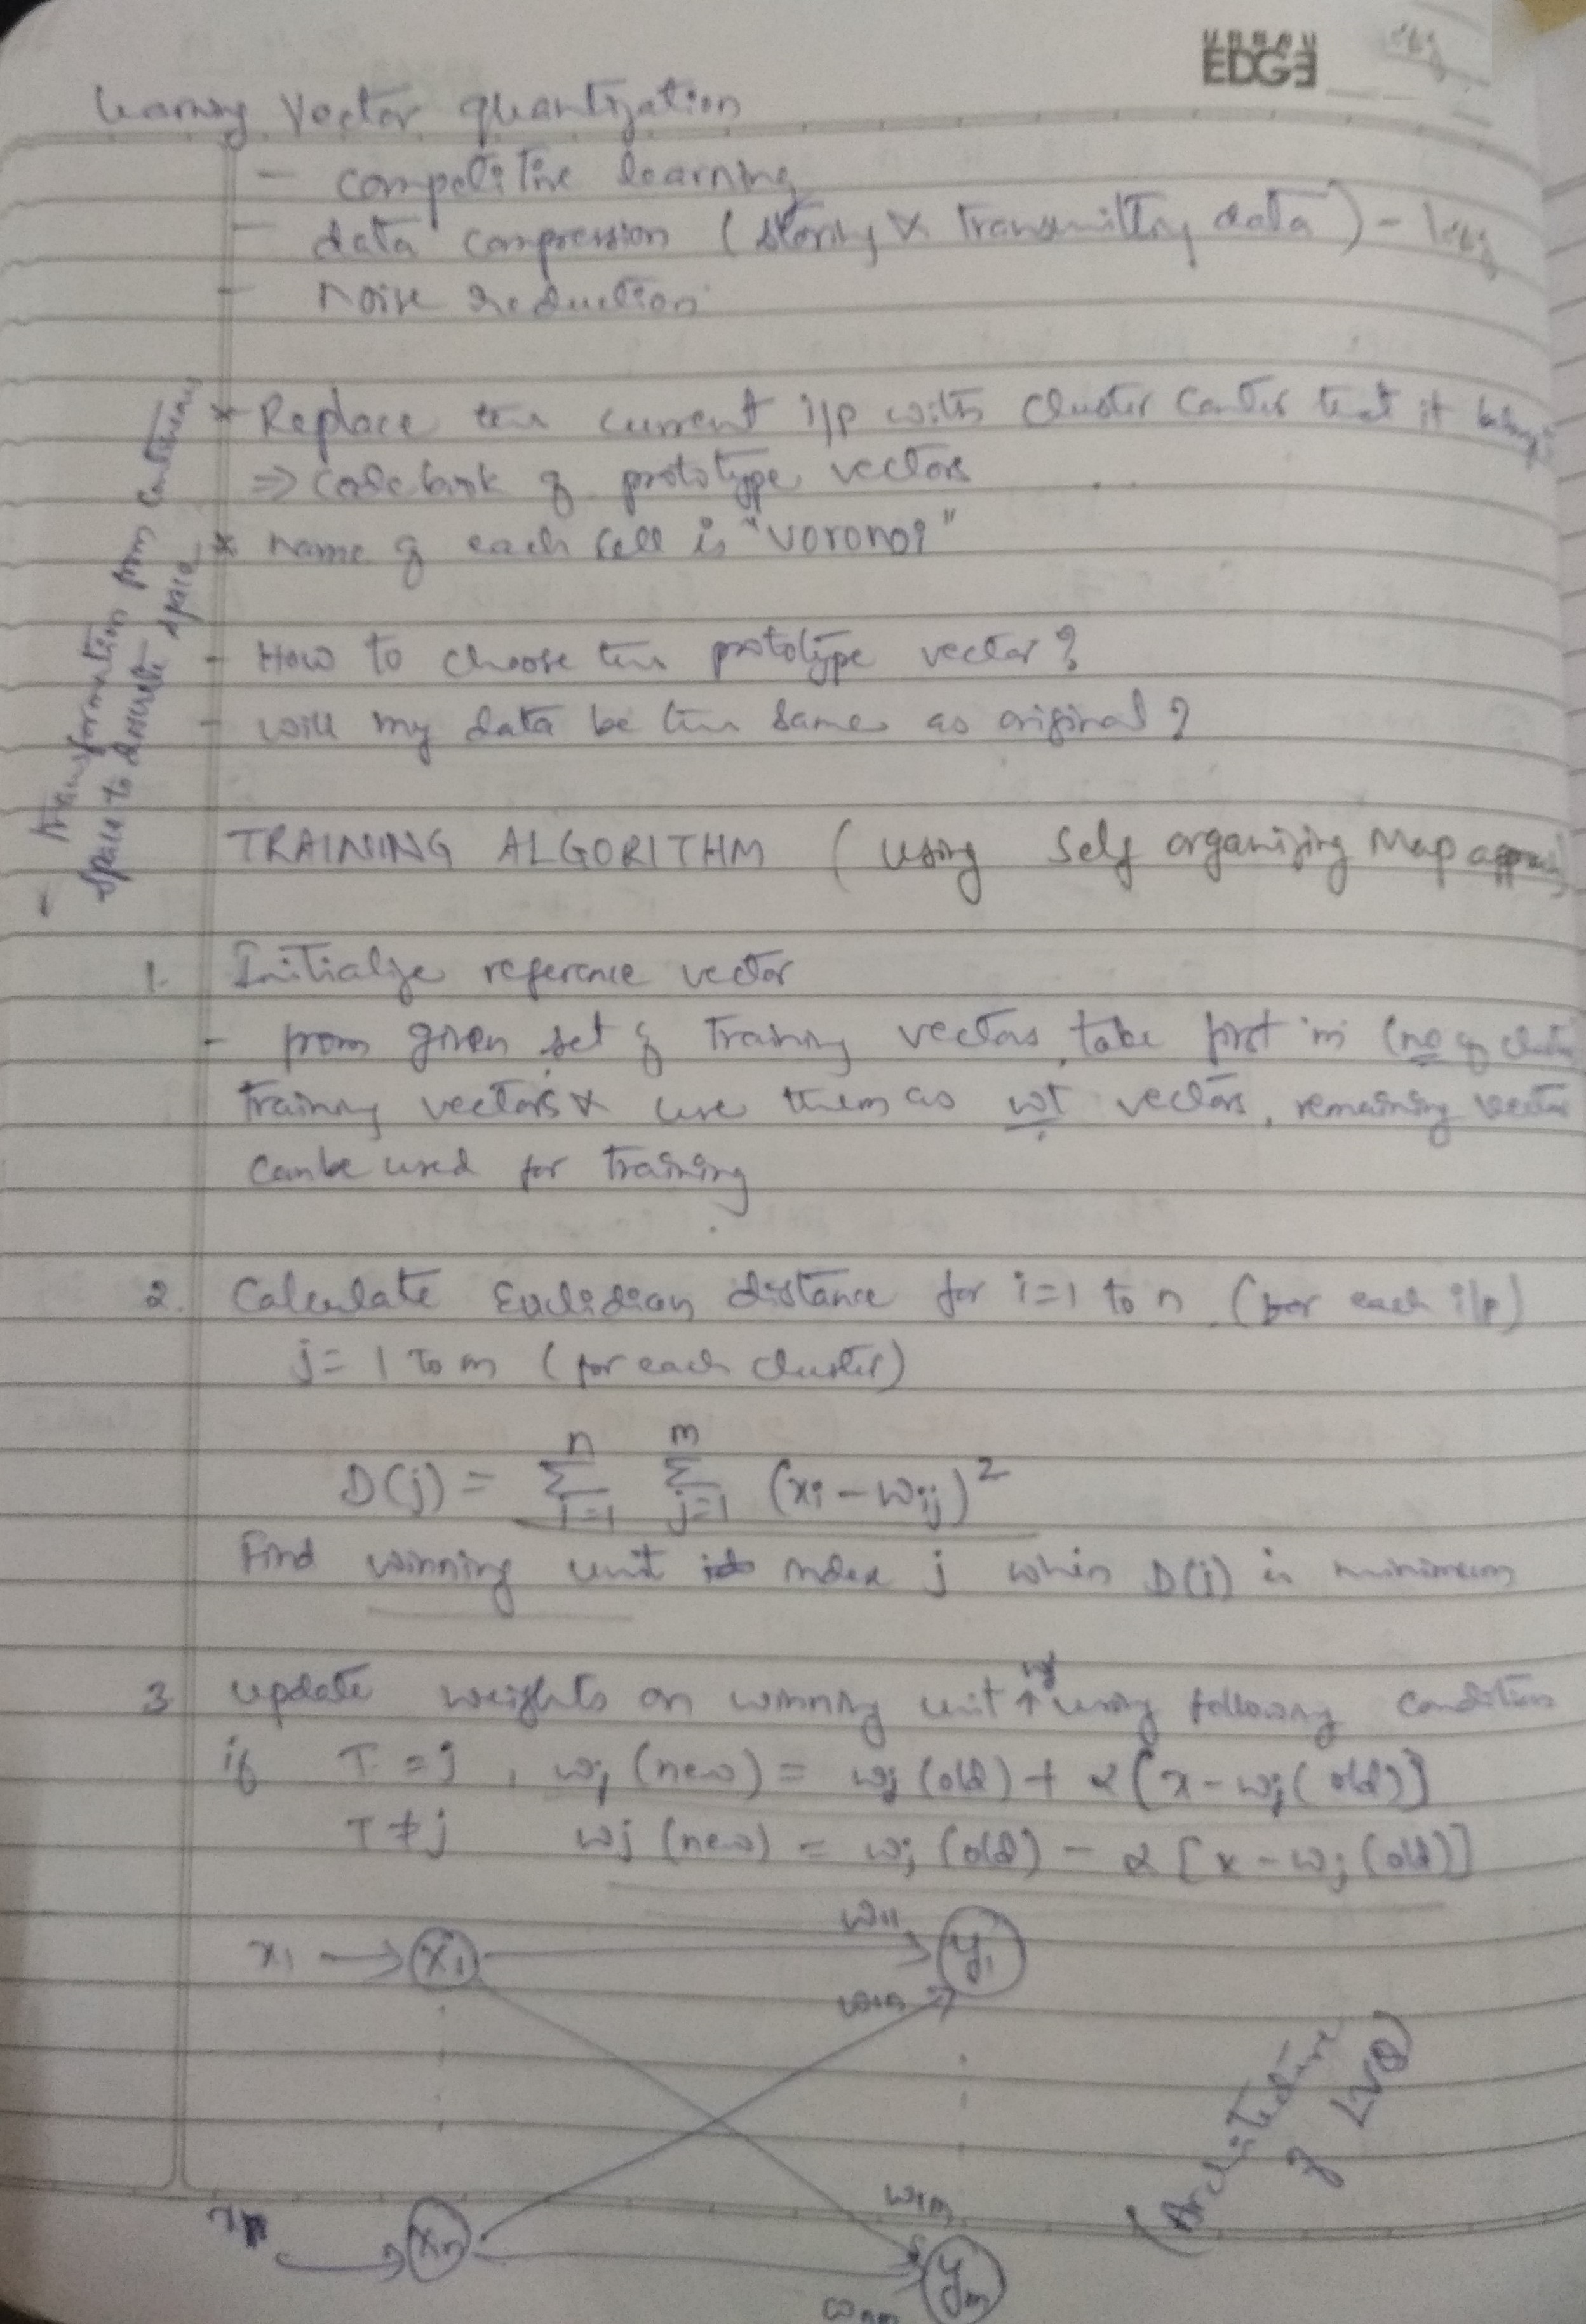 URBAN
EDGE
Learning Vector quantization
- competitive learning
- data compression (storing & transmitting data) -
- noise reduction
* Replace the current i/p with cluster center that it belongs
⇒ Code book of prototype vectors
* name of each cell is "voronoi"
- Transformation from continuous
space to discrete space
- How to choose the prototype vector?
- will my data be the same as original?
TRAINING ALGORITHM (using Self organizing Map
1. Initialize reference vector
- from given set of training vectors, take first 'm' (no of
training vectors & use them as wt vectors, remaining vector
can be used for training
2. Calculate Euclidian distance for i=1 to n (for each i/p)
j=1 to m (for each cluster)
D(j) = n∑i=1 m∑j=1 (xi - wij)²
Find winning unit index j when D(j) is minimum
3 update weights on winning unit using following condition
if T = j, wj (new) = wj (old) + α[x - wj(old)]
T ≠ j wj (new) = wj (old) - α[x - wj(old)]
x1 → X1 w11 y1
wn1
w1m
xn Xn ym
wnm
(Architecture
of LVQ)